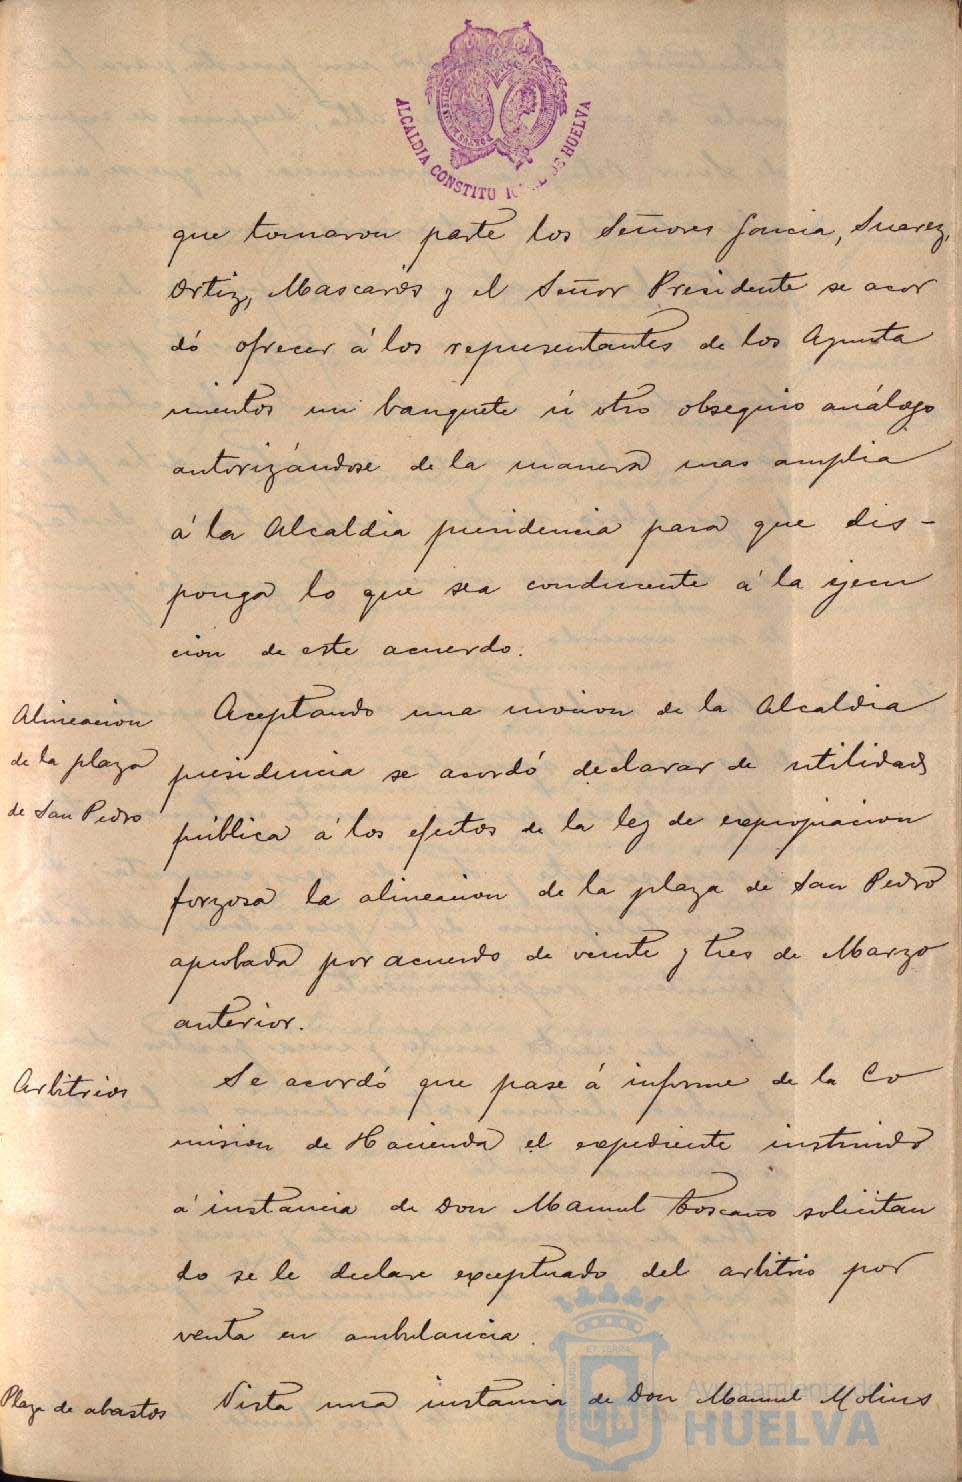 ALCALDIA CONSTITU
DE HUELVA
que tomaron parte los Señores Garcia, Suarez,
Ortiz, Mascarós y el Señor Presidente se acor
dó ofrecer á los representantes de los Ayunta
mientos un banquete ú otro obsequio análogo
autorizándose de la manera mas amplia
á la Alcaldia presidencia para que dis-
ponga lo que sea conducente á la ejecu
cion de este acuerdo.
Alineacion
de la plaza
de San Pedro
Aceptando una mocion de la Alcaldia
presidencia se acordó declarar de utilidad
pública á los efectos de la ley de expropiacion
forzosa la alineacion de la plaza de San Pedro
aprobada por acuerdo de veinte y tres de Marzo
anterior.
Arbitrios
Se acordó que pase á informe de la Co
mision de Hacienda el expediente instruido
á instancia de Don Manuel Toscano solicitan
do se le declare exceptuado del arbitrio por
venta en ambulancia.
Plaza de abastos
Vista una instancia de Don Manuel Molins
Ayuntamiento de
HUELVA